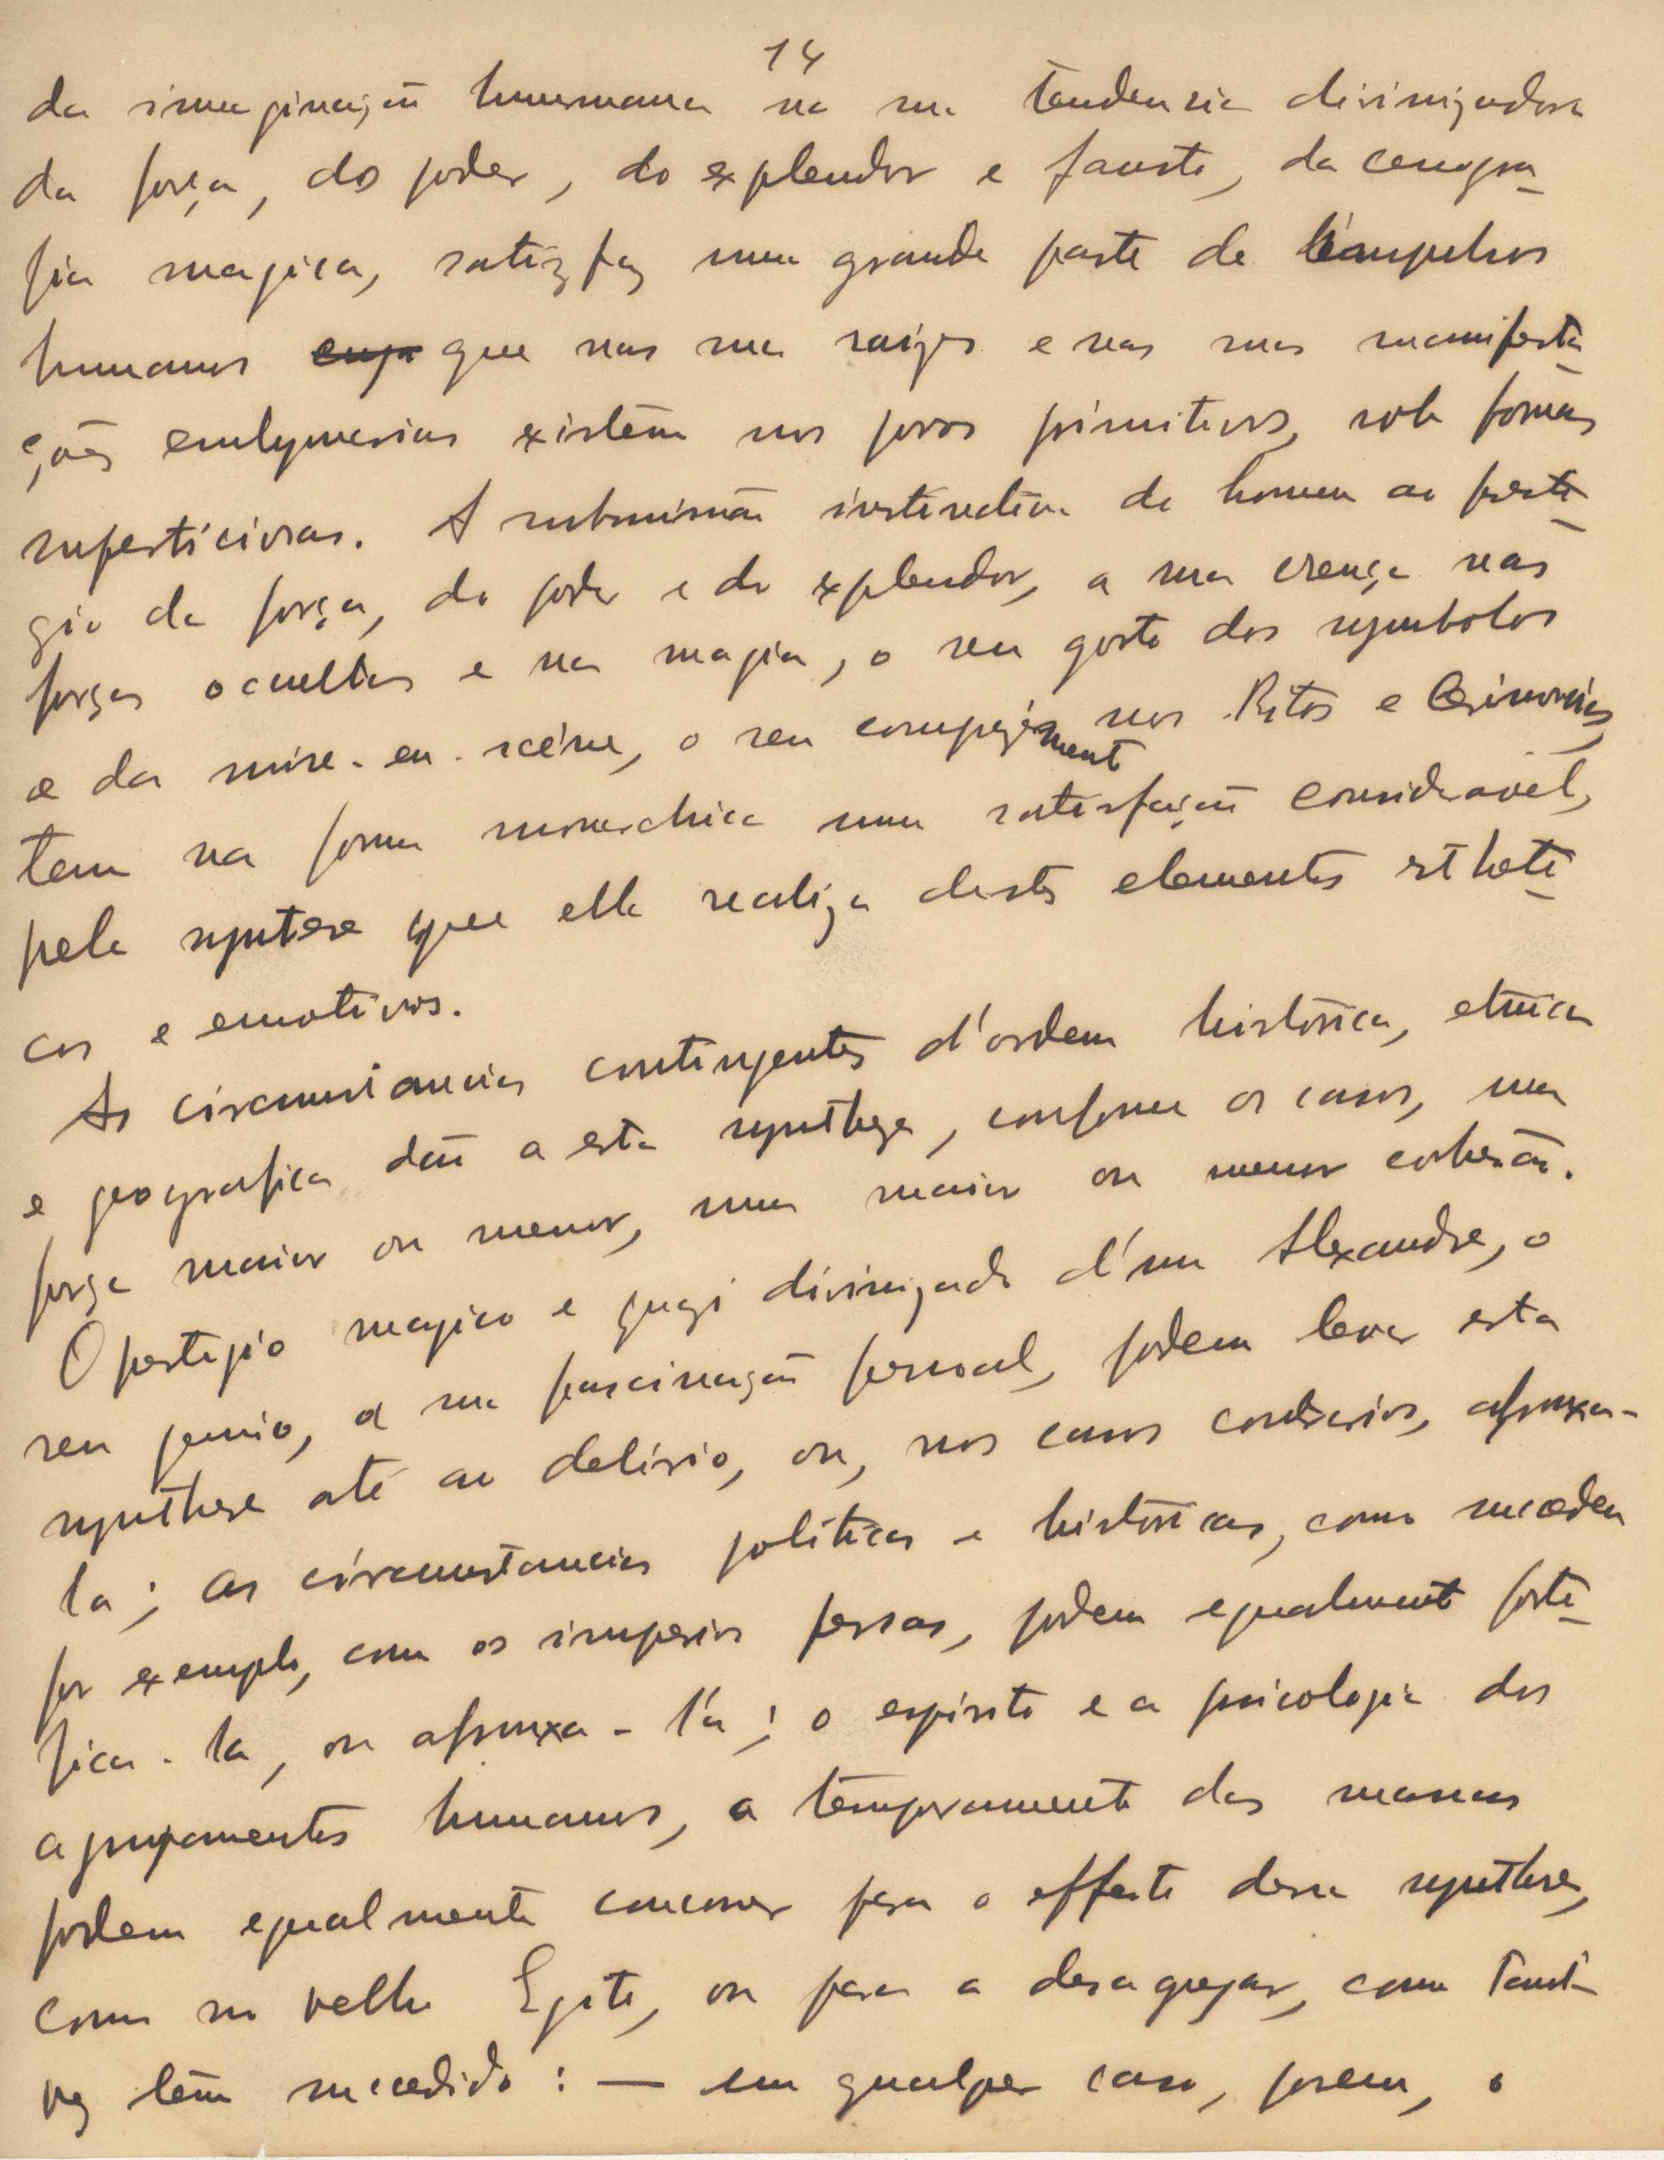 14
da imaginação humana na sua tendencia divinizadora
da força, do poder, do explendor e fausto, da cenogra-
fia magica, satisfaz uma grande parte de impulsos
humanos cuja que nas sua raizes e nas suas manifesta-
ções embryonarias existem nos povos primitivos, sob formas
supersticiosas. A submissão instinctiva do homem ao presti-
gio da força, do poder e do explendor, a sua crença nas
forças occultas e na magia, o seu gosto dos symbolos
e da mise-en-scéne, o seu nos Ritos e Cerimonias,
tem na forma monarchica uma satisfação consideravel,
pela syntese que ella realiza destes elementos estheti-
cos e emotivos.
As circumstancias contingentes d'ordem historica, etnica
e geografica dão a esta synthese, conforme os casos, uma
força maior ou menor, uma maior ou menor cohesão.
O prestigio magico e quazi divinizado d'um Alexandre, o
seu genio, a sua fascinação pessoal, podem levar esta
synthese até ao delirio, ou, nos casos contrarios, afrouxa-
la; as circumstancias politicas e historicas, como succedeu
por exemplo, com os imperios persas, podem egualmente forti-
fica-la, ou afrouxa-la; o espirito e a psicologia dos
agrupamentos humanos, o temperamento das massas
podem egualmente concorrer para o effeito dessa synthese,
como no velho Egito, ou para a desagregar, como tanta
vez tem succedido: — em qualquer caso, porem, o